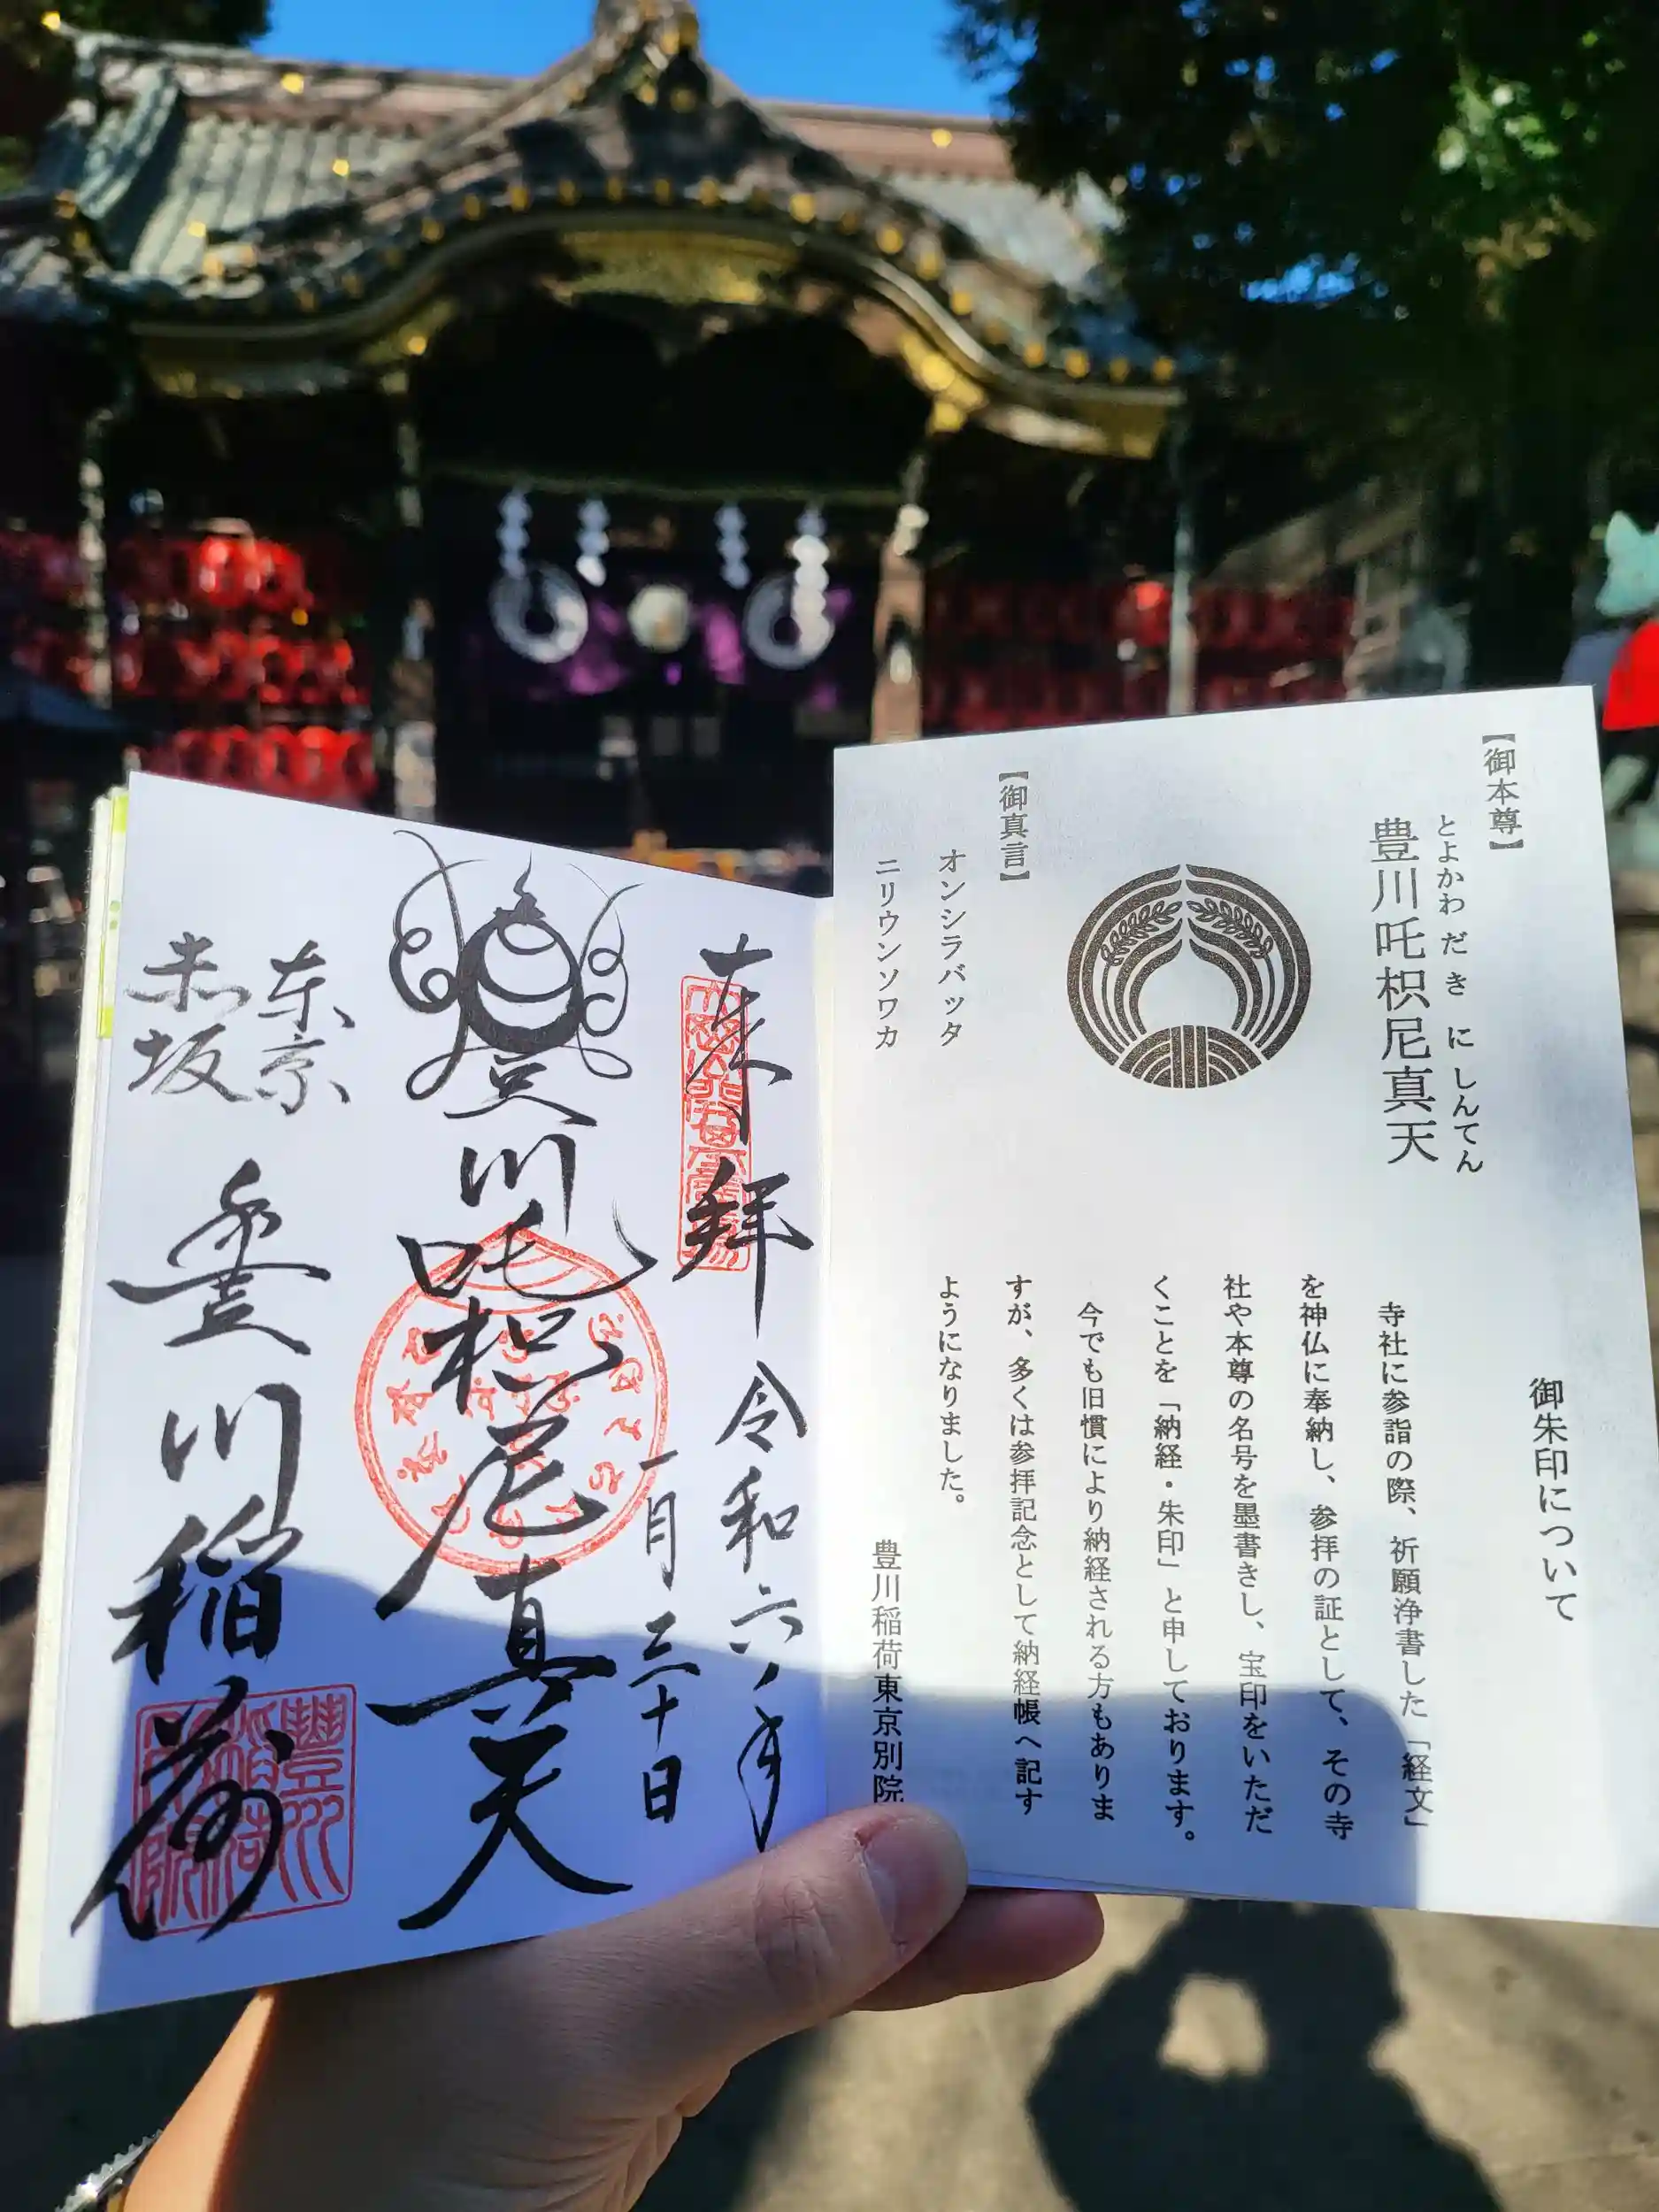 【御本尊】
とよかわ だ き に しんてん
豊川吒枳尼真天
【御真言】
オンシラバッタ
ニリウンソワカ
御朱印について
寺社に参詣の際、祈願浄書した「経文」
を神仏に奉納し、参拝の証として、その寺
社や本尊の名号を墨書きし、宝印をいただ
くことを「納経・朱印」と申しております。
今でも旧慣により納経される方もありま
すが、多くは参拝記念として納経帳へ記す
ようになりました。
豊川稲荷東京別院
奉拝
令和六年
一月三十日
豊川吒枳尼真天
東京
赤坂
豊川稲荷